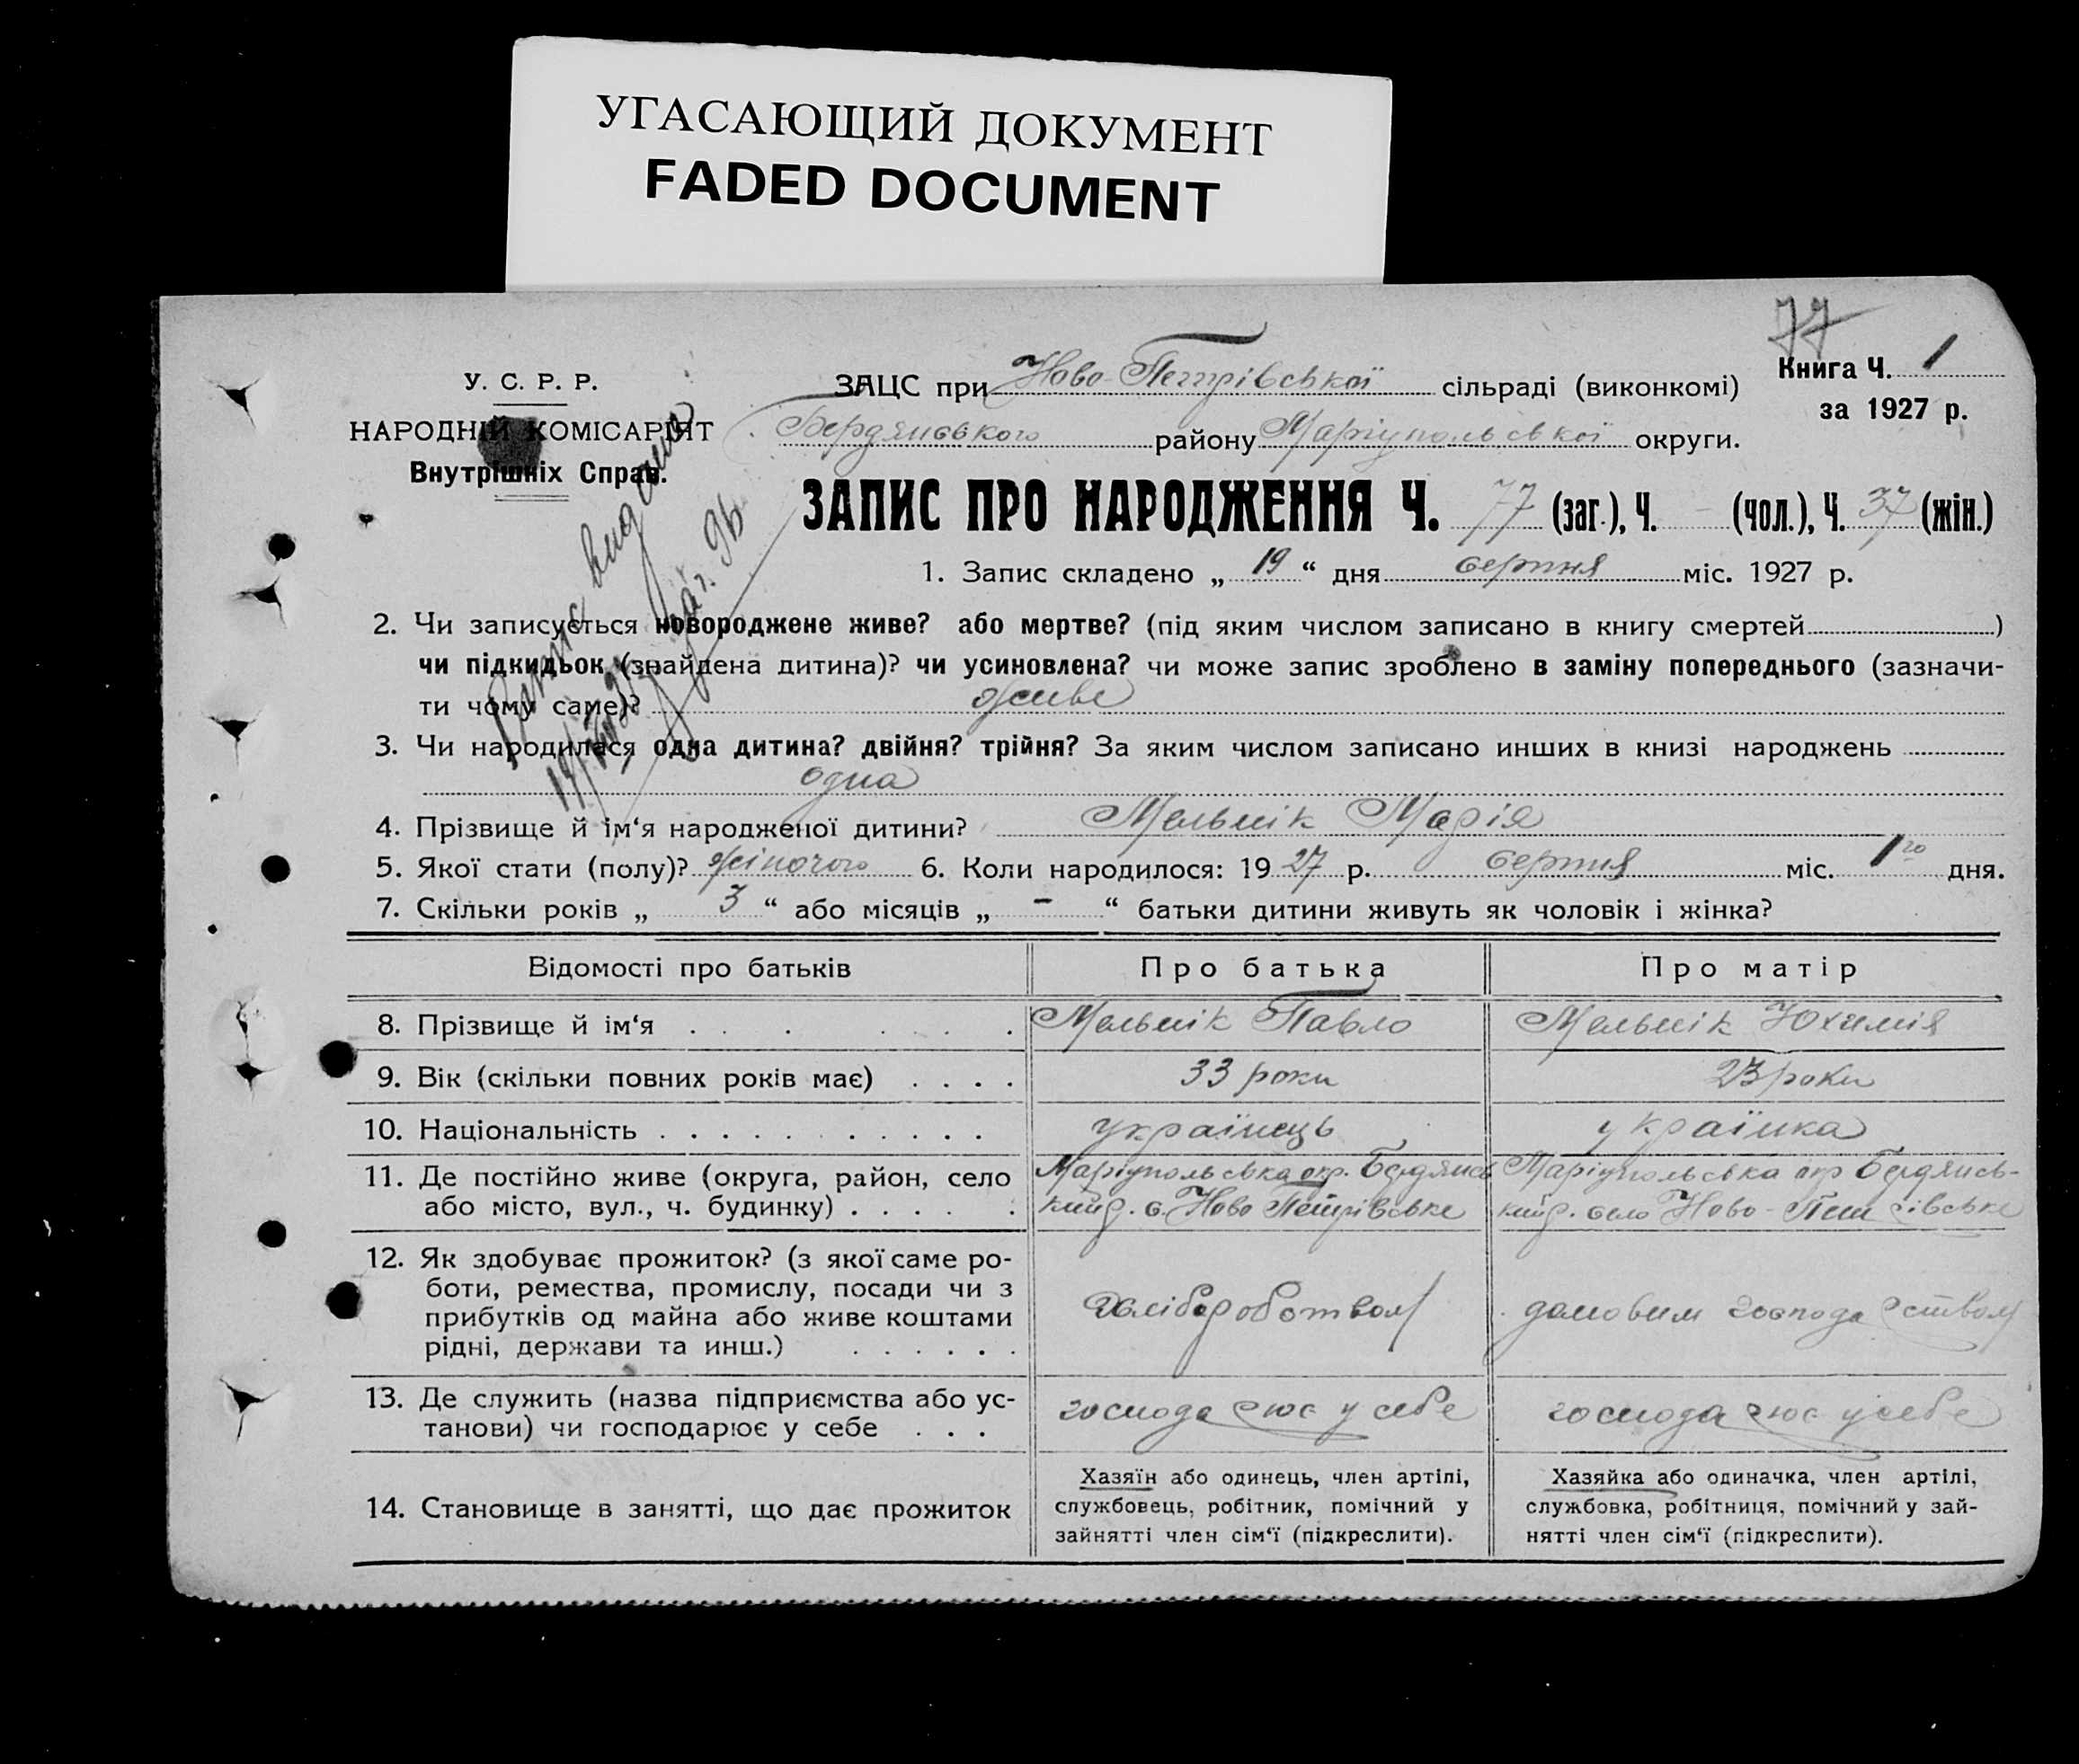 УГАСАЮЩИЙ ДОКУМЕНТ
FADED DOCUMENT
77
У. С. Р. Р.
НАРОДНІЙ КОМІСАРІЯТ
Внутрішніх Справ.
ЗАЦС при Ново-Петрівської сільраді (виконкомі)
Бердянського району Маріупольської округи.
Книга Ч. 1
за 1927 р.
ЗАПИС ПРО НАРОДЖЕННЯ Ч. 77 (заг.), Ч. - (чол.), Ч. 37 (жін.)
1. Запис складено „ 19 “ дня серпня міс. 1927 р.
видана
2. Чи записується новороджене живе? або мертве? (під яким числом записано в книгу смертей )
чи підкидьок (знайдена дитина)? чи усиновлена? чи може запис зроблено в заміну попереднього (зазначи-
ти чому саме)? живе
3. Чи народилася одна дитина? двійня? трійня? За яким числом записано инших в книзі народжень
одна
4. Прізвище й ім‘я народженої дитини? Мельнік Марія
5. Якої стати (полу)? жіночого 6. Коли народилося: 1927 р. серпня міс. 1го дня.
7. Скільки років „ 3 “ або місяців „ - “ батьки дитини живуть як чоловік і жінка?
Відомості про батьків Про батька Про матір
8. Прізвище й ім‘я . . . . . . . Мельнік Павло Мельнік Юхимія
9. Вік (скільки повних років має) . . . . 33 роки 23 роки
10. Національність . . . . . . . . . . . українець українка
11. Де постійно живе (округа, район, село Маріупольська окр. Бердянсь Маріупольська окр Бердянсь-
або місто, вул., ч. будинку) . . . . . кий р. с. Ново Петрівське кий р. село Ново-Петрівське
12. Як здобуває прожиток? (з якої саме ро-
боти, ремества, промислу, посади чи з
прибутків од майна або живе коштами
рідні, держави та инш.) . . . . . .
хліборобством домовим господарством
13. Де служить (назва підприємства або ус-
танови) чи господарює у себе . . .
господарює у себе господарює у себе
14. Становище в занятті, що дає прожиток
Хазяїн або одинець, член артілі,
службовець, робітник, помічний у
зайнятті член сім‘ї (підкреслити).
Хазяйка або одиначка, член артілі,
службовка, робітниця, помічний у зай-
нятті член сім‘ї (підкреслити).